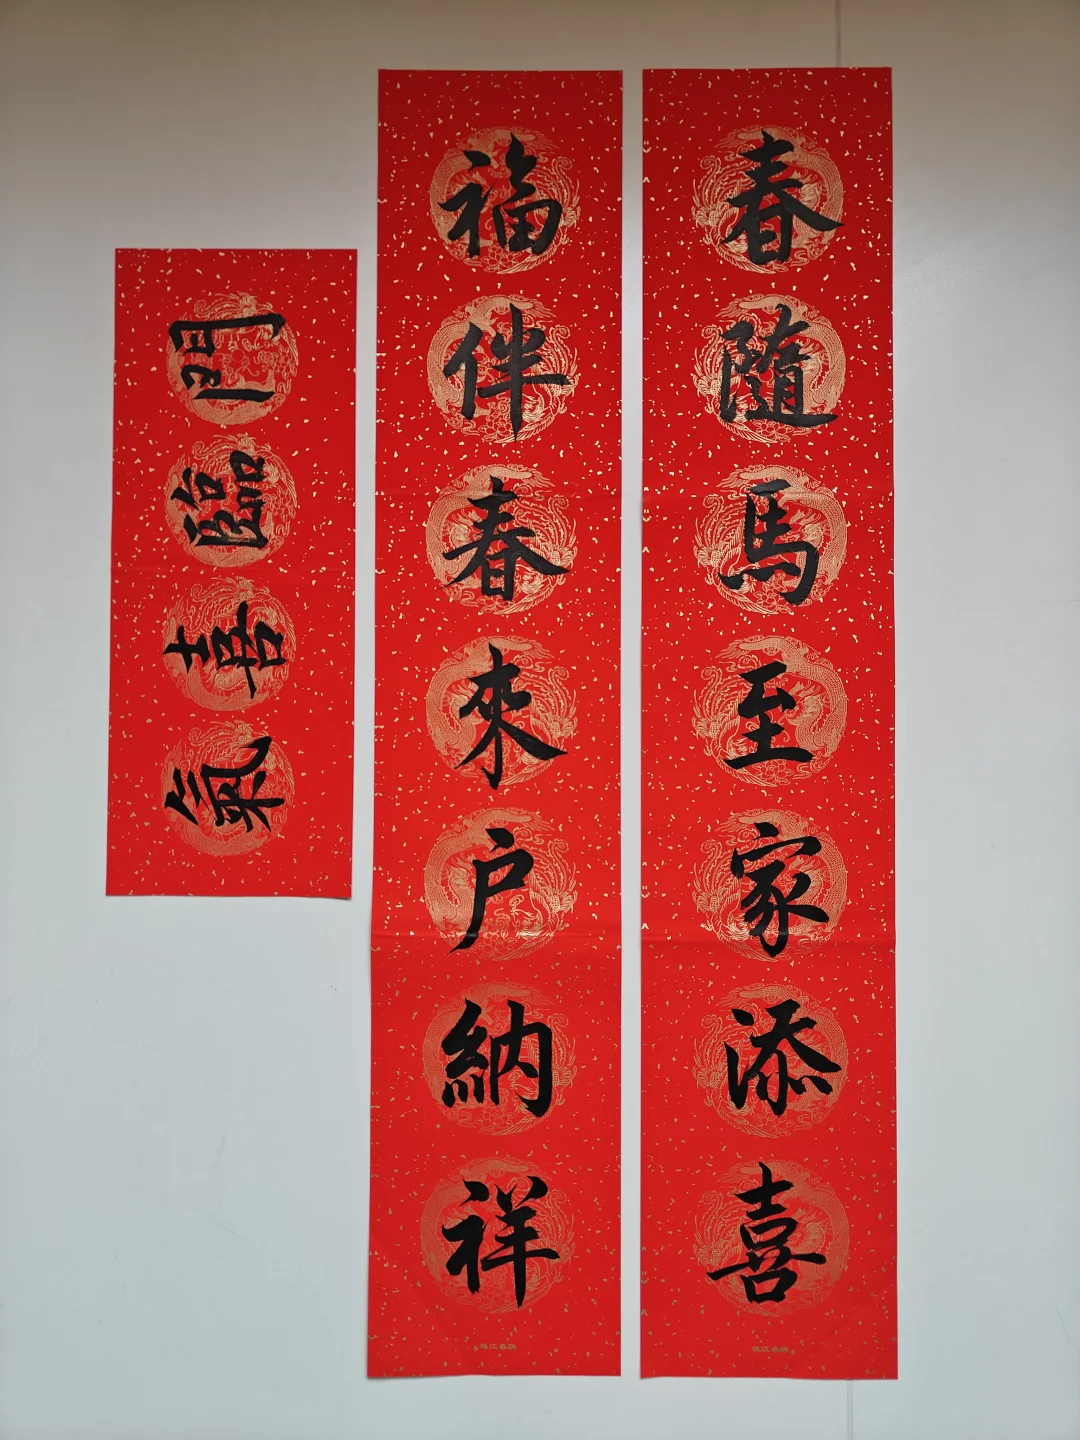 春隨馬至家添喜
福伴春來户納祥
門臨喜氣